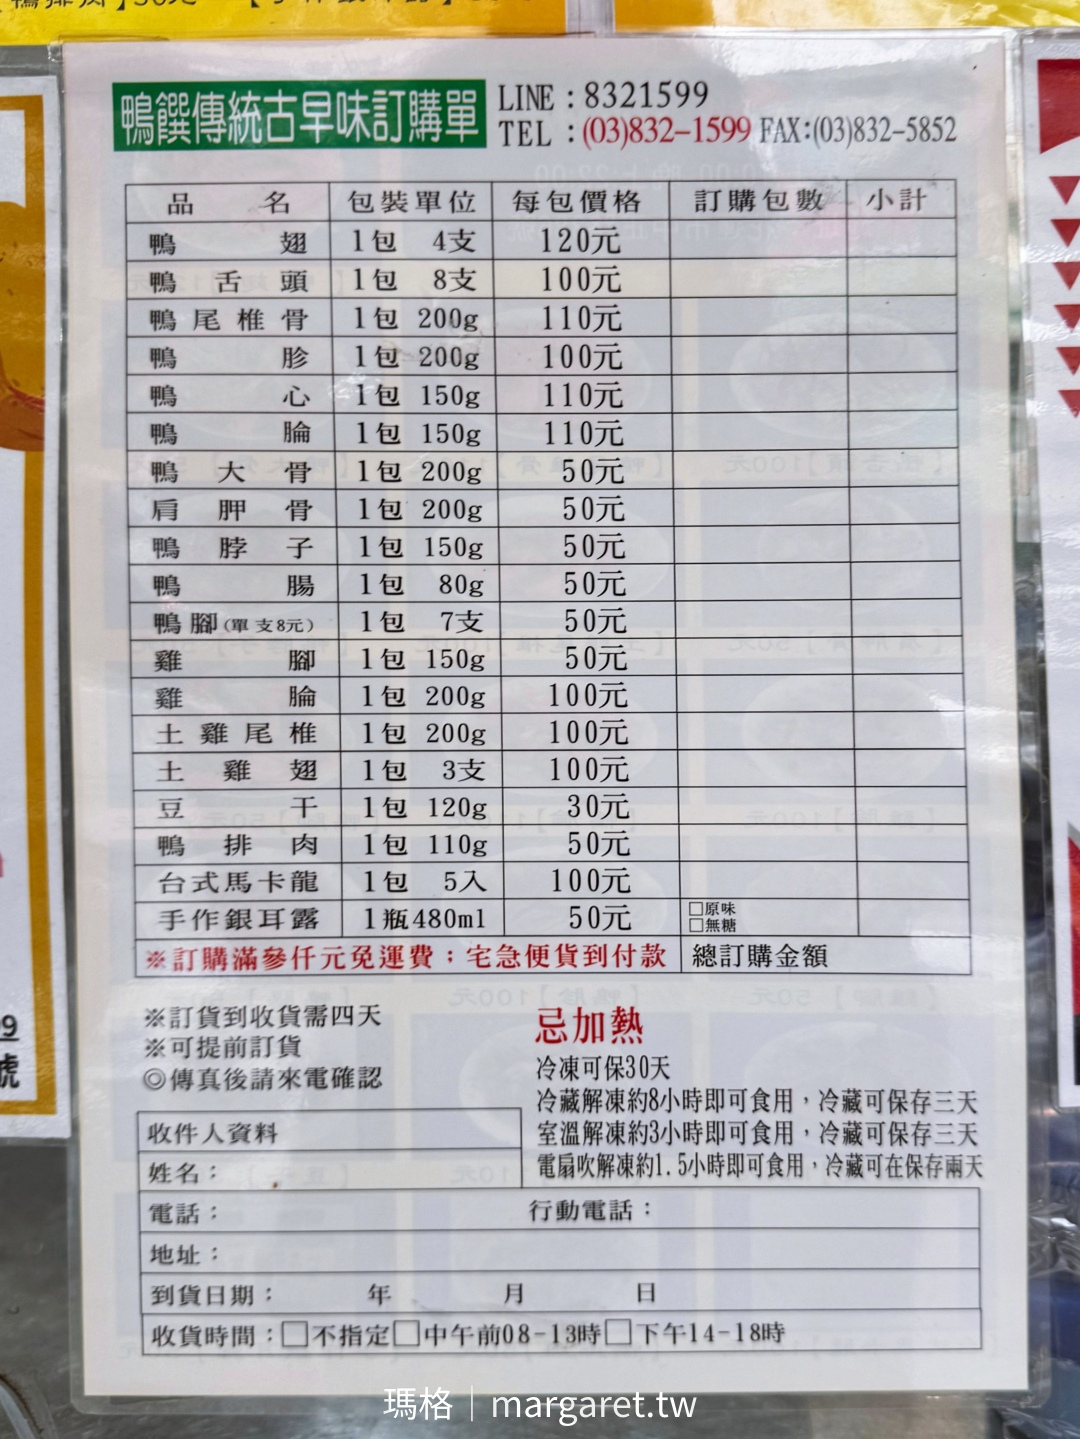 鴨饌傳統古早味訂購單
LINE：8321599
TEL：(03)832-1599 FAX:(03)832-5852
品名 包裝單位 每包價格 訂購包數 小計
鴨翅 1包 4支 120元
鴨舌頭 1包 8支 100元
鴨尾椎骨 1包 200g 110元
鴨胗 1包 200g 100元
鴨心 1包 150g 110元
鴨腀 1包 150g 110元
鴨大骨 1包 200g 50元
肩胛骨 1包 200g 50元
鴨脖子 1包 150g 50元
鴨腸 1包 80g 50元
鴨腳(單支8元) 1包 7支 50元
雞腳 1包 150g 50元
雞腀 1包 200g 100元
土雞尾椎 1包 200g 100元
土雞翅 1包 3支 100元
豆干 1包 120g 30元
鴨排肉 1包 110g 50元
台式馬卡龍 1包 5入 100元
手作銀耳露 1瓶480ml 50元 □原味
□無糖
※訂購滿參仟元免運費；宅急便貨到付款 總訂購金額
※訂貨到收貨需四天
※可提前訂貨
◎傳真後請來電確認
忌加熱
冷凍可保30天
冷藏解凍約8小時即可食用，冷藏可保存三天
室溫解凍約3小時即可食用，冷藏可保存三天
電扇吹解凍約1.5小時即可食用，冷藏可在保存兩天
收件人資料
姓名：
電話： 行動電話：
地址：
到貨日期： 年 月 日
收貨時間：□不指定□中午前08-13時□下午14-18時
瑪格｜margaret.tw